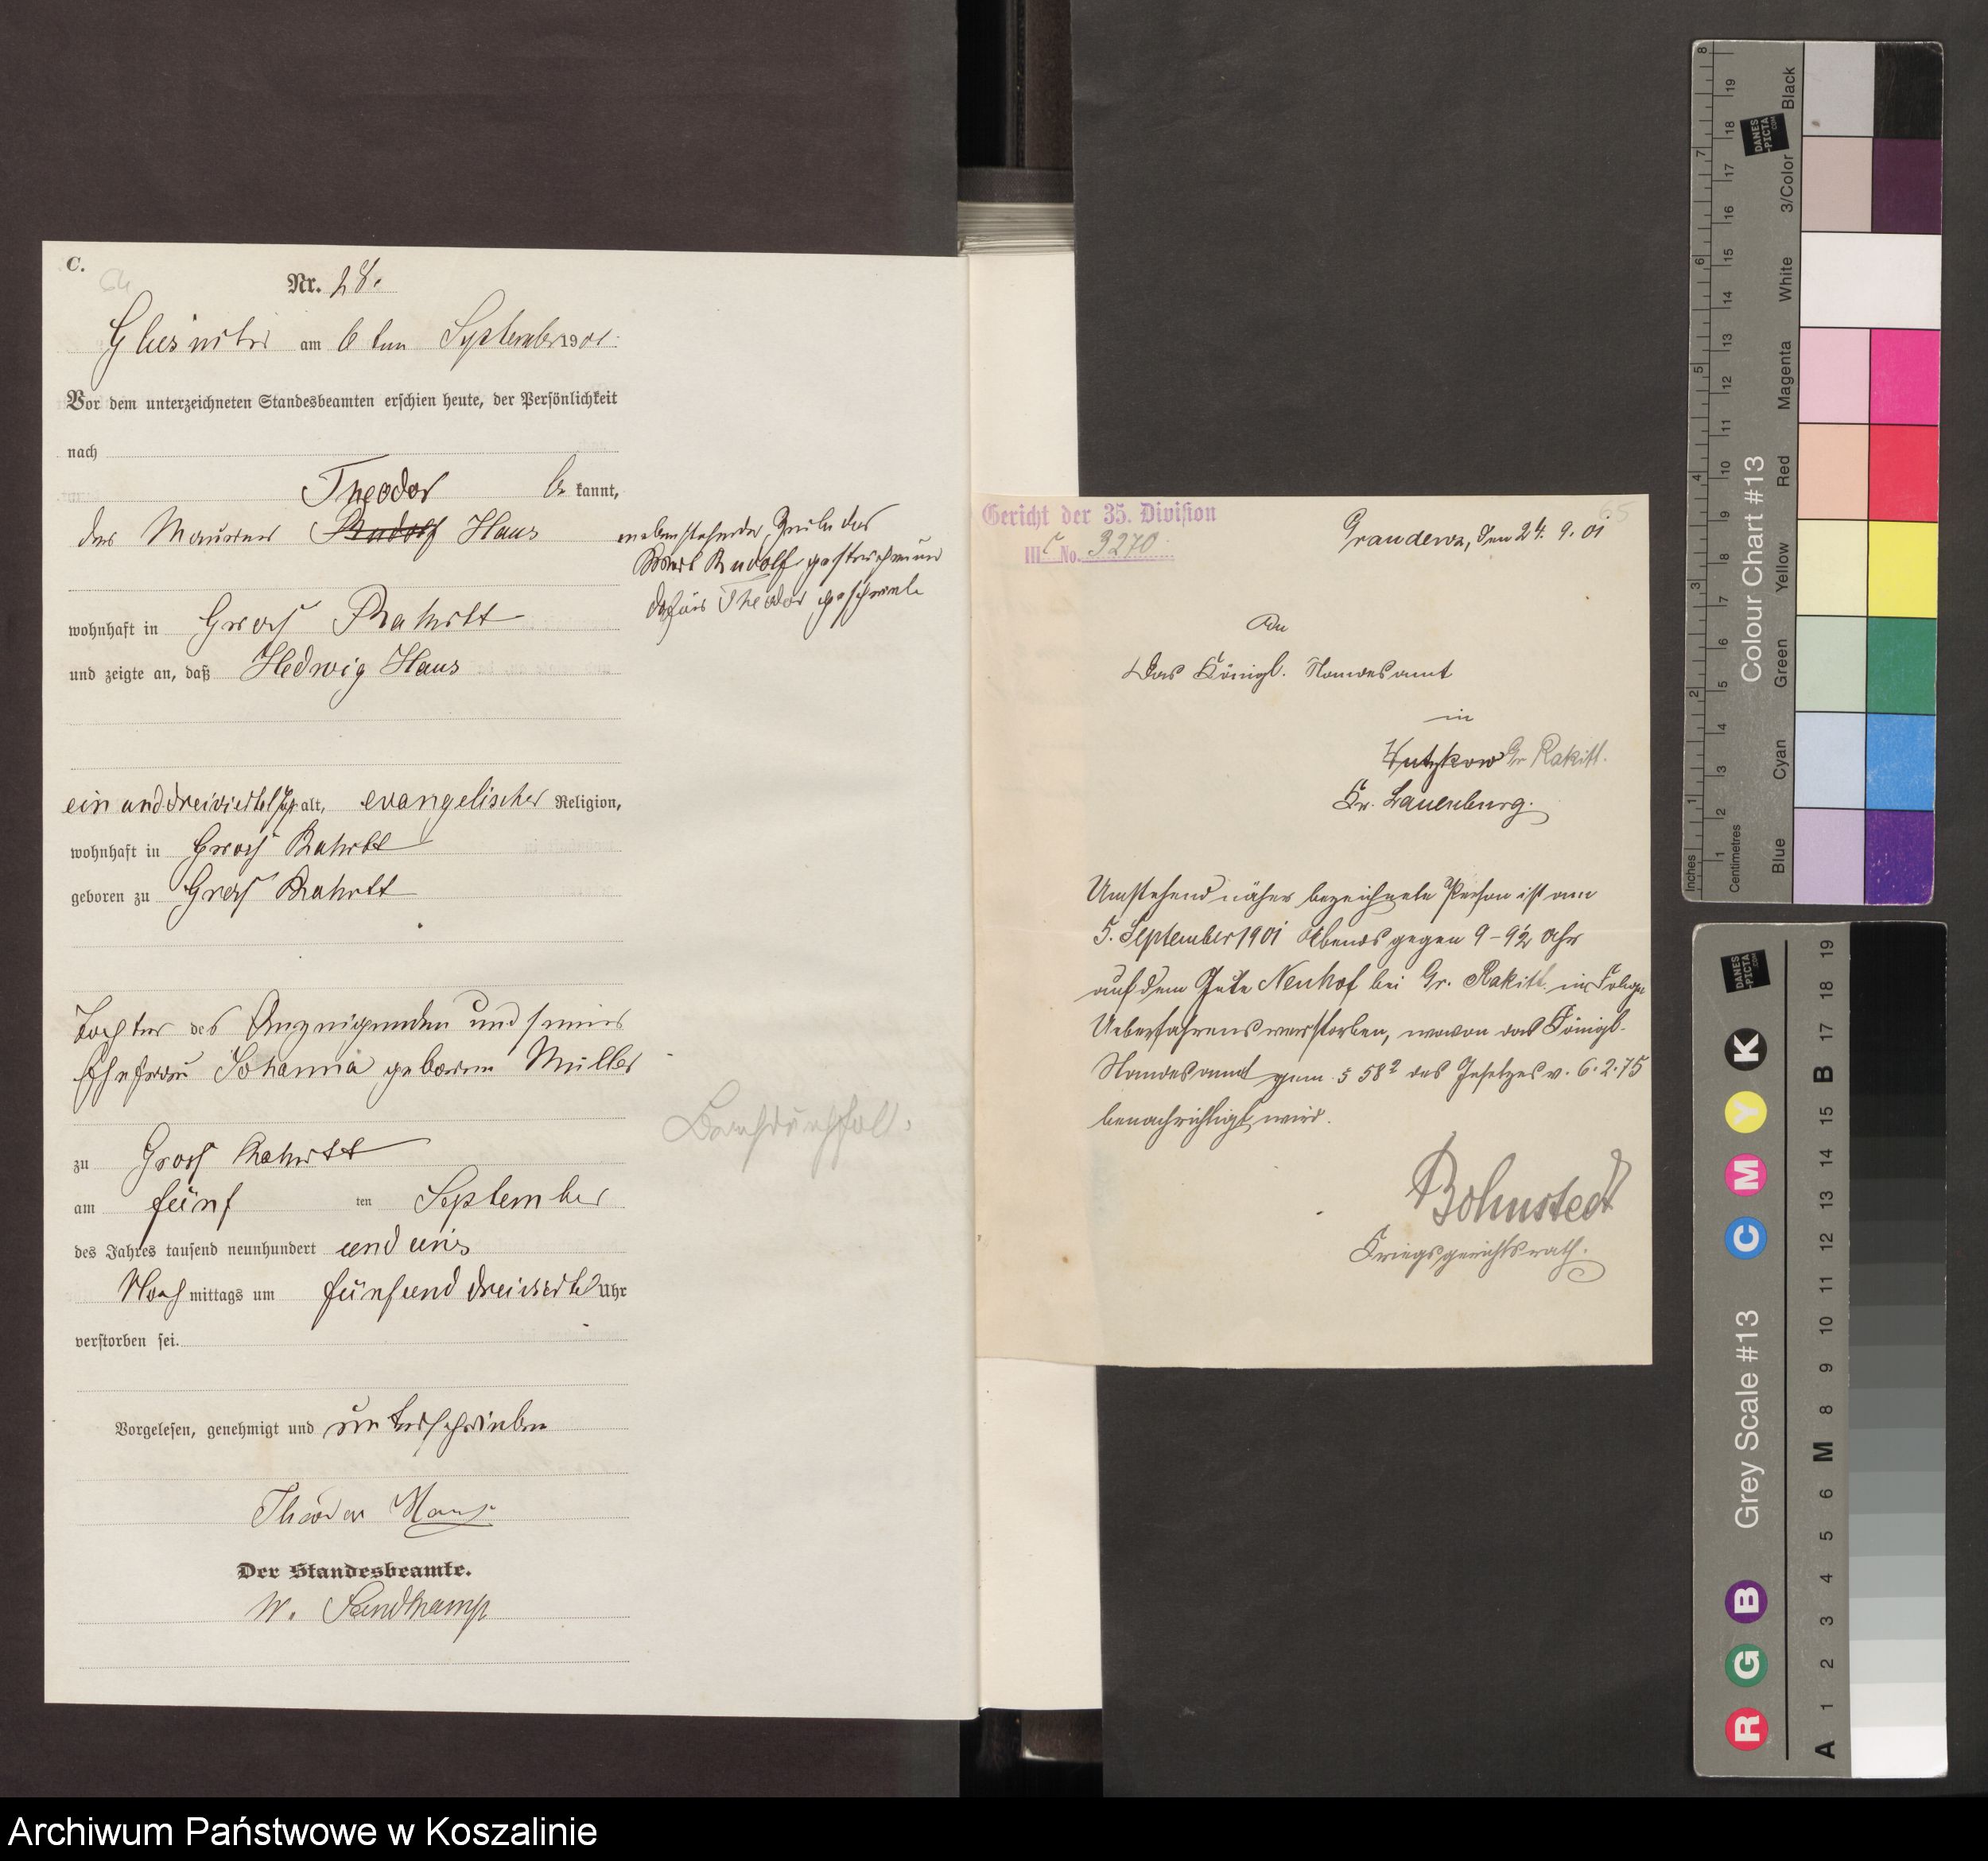 C.
64
Nr. 28.
Gliesnitz am 6 ten September 1901.
Vor dem unterzeichneten Standesbeamten erschien heute, der Persönlichkeit
nach
Theodor be kannt,
der Maurer Rudolf Haus
wohnhaft in Gross Rakitt
und zeigte an, daß Hedwig Haus
ein und dreiviertel Jahr alt, evangelischer Religion,
wohnhaft in Gross Rakitt
geboren zu Gross Rakitt
Tochter des Anzeigenden und seiner
Ehefrau Johanna geborene Müller
zu Gross Rakitt
am fünf ten September
des Jahres tausend neunhundert und eins
Nach mittags um fünfunddreiviertel Uhr
verstorben sei.
Vorgelesen, genehmigt und unterschrieben
Theodor Haus
Der Standesbeamte.
W. Sandkamp
nebenstehender Zeile das
Wort Rudolf gestrichen und
dafür Theodor geschrieben
Brechdurchfall.
Gericht der 35. Division
IIIc No. 3270
65
Graudenz, den 24. 9. 01
An
Das Königl. Standesamt
in
Wutzkow Gr Rakitt.
Kr. Lauenburg.
Umstehend näher bezeichnete Person ist am
5. September 1901 Abends gegen 9-9½ Uhr
auf dem Gute Neuhof bei Gr. Rakitt in Folge
Ueberfahrens verstorben, wovon das Königl.
Standesamt gem. § 58² des Gesetzes v. 6.2.75
benachrichtigt wird.
Bohnstedt
Kriegsgerichtsrath.
Inches
Centimetres
Colour Chart #13
Blue
Cyan
Green
Yellow
Red
Magenta
White
3/Color
Black
DANES
-PICTA
.COM
Grey Scale #13
R G B C M Y K
A 1 2 3 4 5 6 M 8 9 10 11 12 13 14 15 B 17 18 19
Archiwum Państwowe w Koszalinie